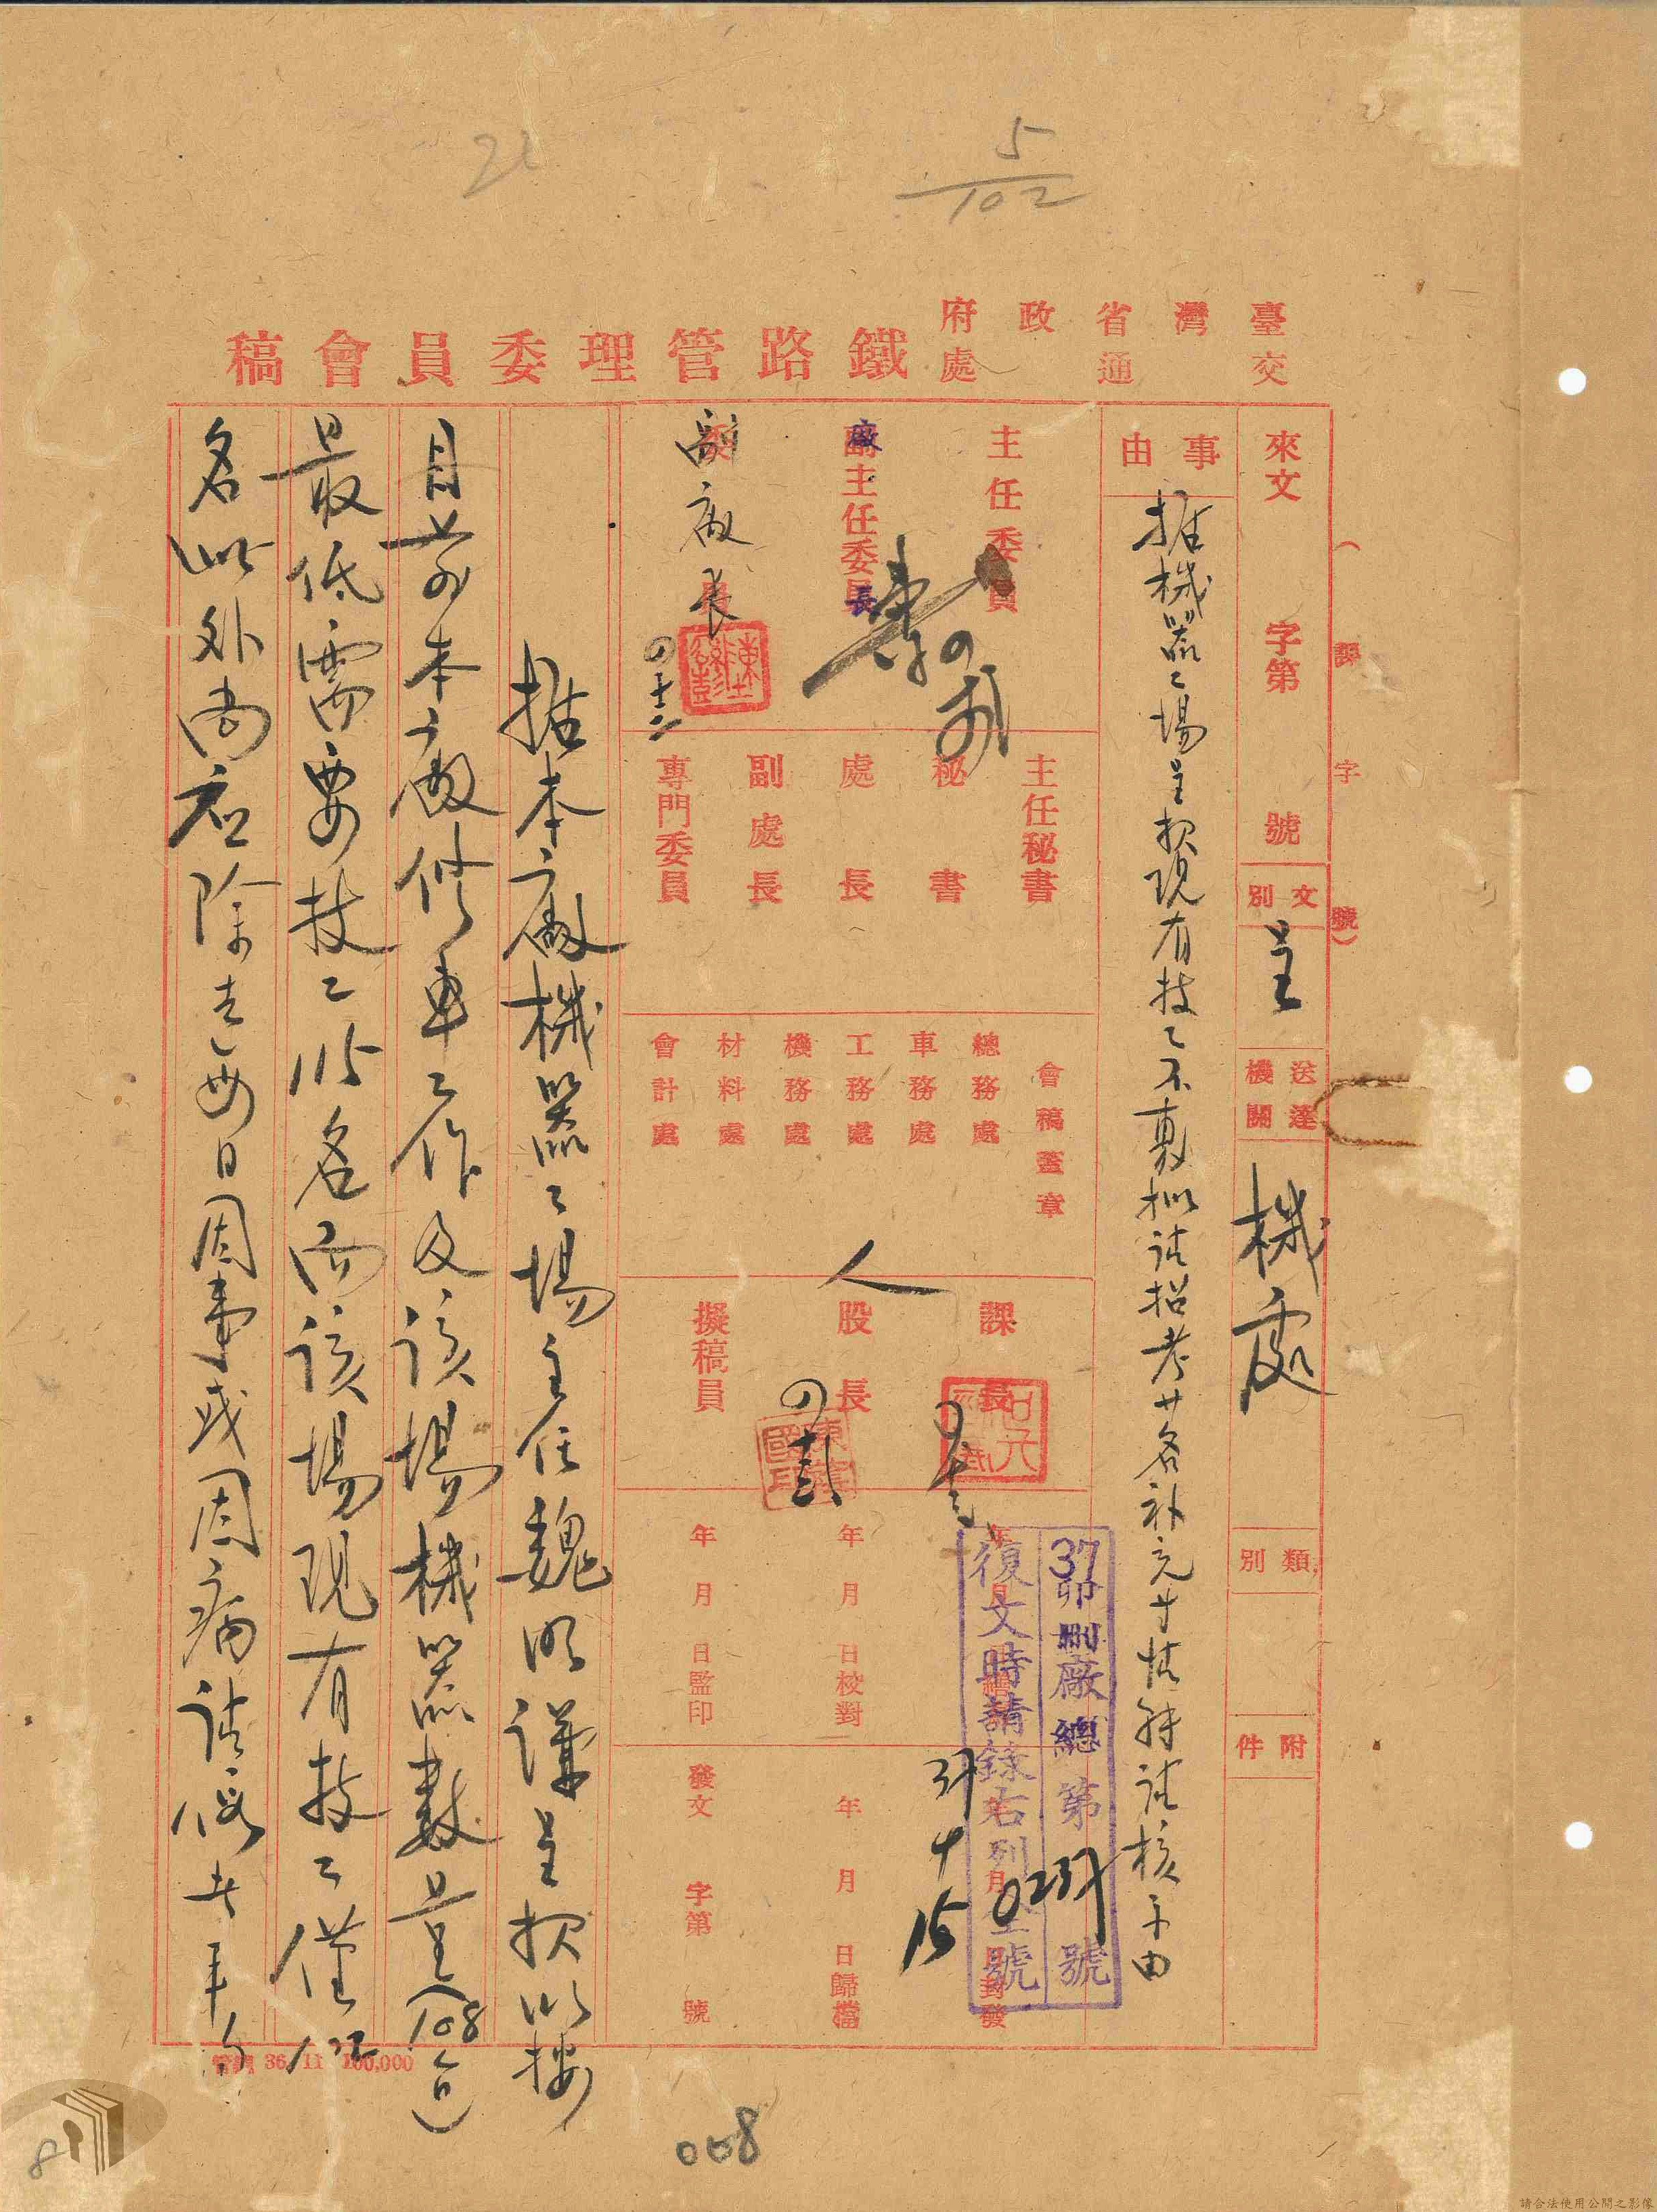 5
102
21
臺灣省政府
交通處
鐵路管理委員會稿
（　課　字　號）
來文　字第　號
文別
呈
送達機關
機處
類別
附件
事由
據機器工場呈報現有技工不敷擬請招考廿名補充
請核示由
主任委員
廠
副主任委員
長
委員
副廠長
主任秘書
秘書
處長
副處長
專門委員
會稿蓋章
總務處
車務處
工務處
機務處
材料處
會計處
課長
股長
擬稿員
年　月　日繕寫
年　月　日校對
年　月　日監印
年　月　日封發
年　月　日歸檔
發文　字第　號
37卯　廠總第0237號
復文時請錄右列全號
37
十
15
據本廠機器工場主任魏　謀呈報以按
目前本廠修車工作及該場機器數量（108台）
最低需要技工115名而該場現有技工僅
名此外尚應除去每日因事或因病請假者平均
36　11　100,000
008
8
請合法使用公開之影像